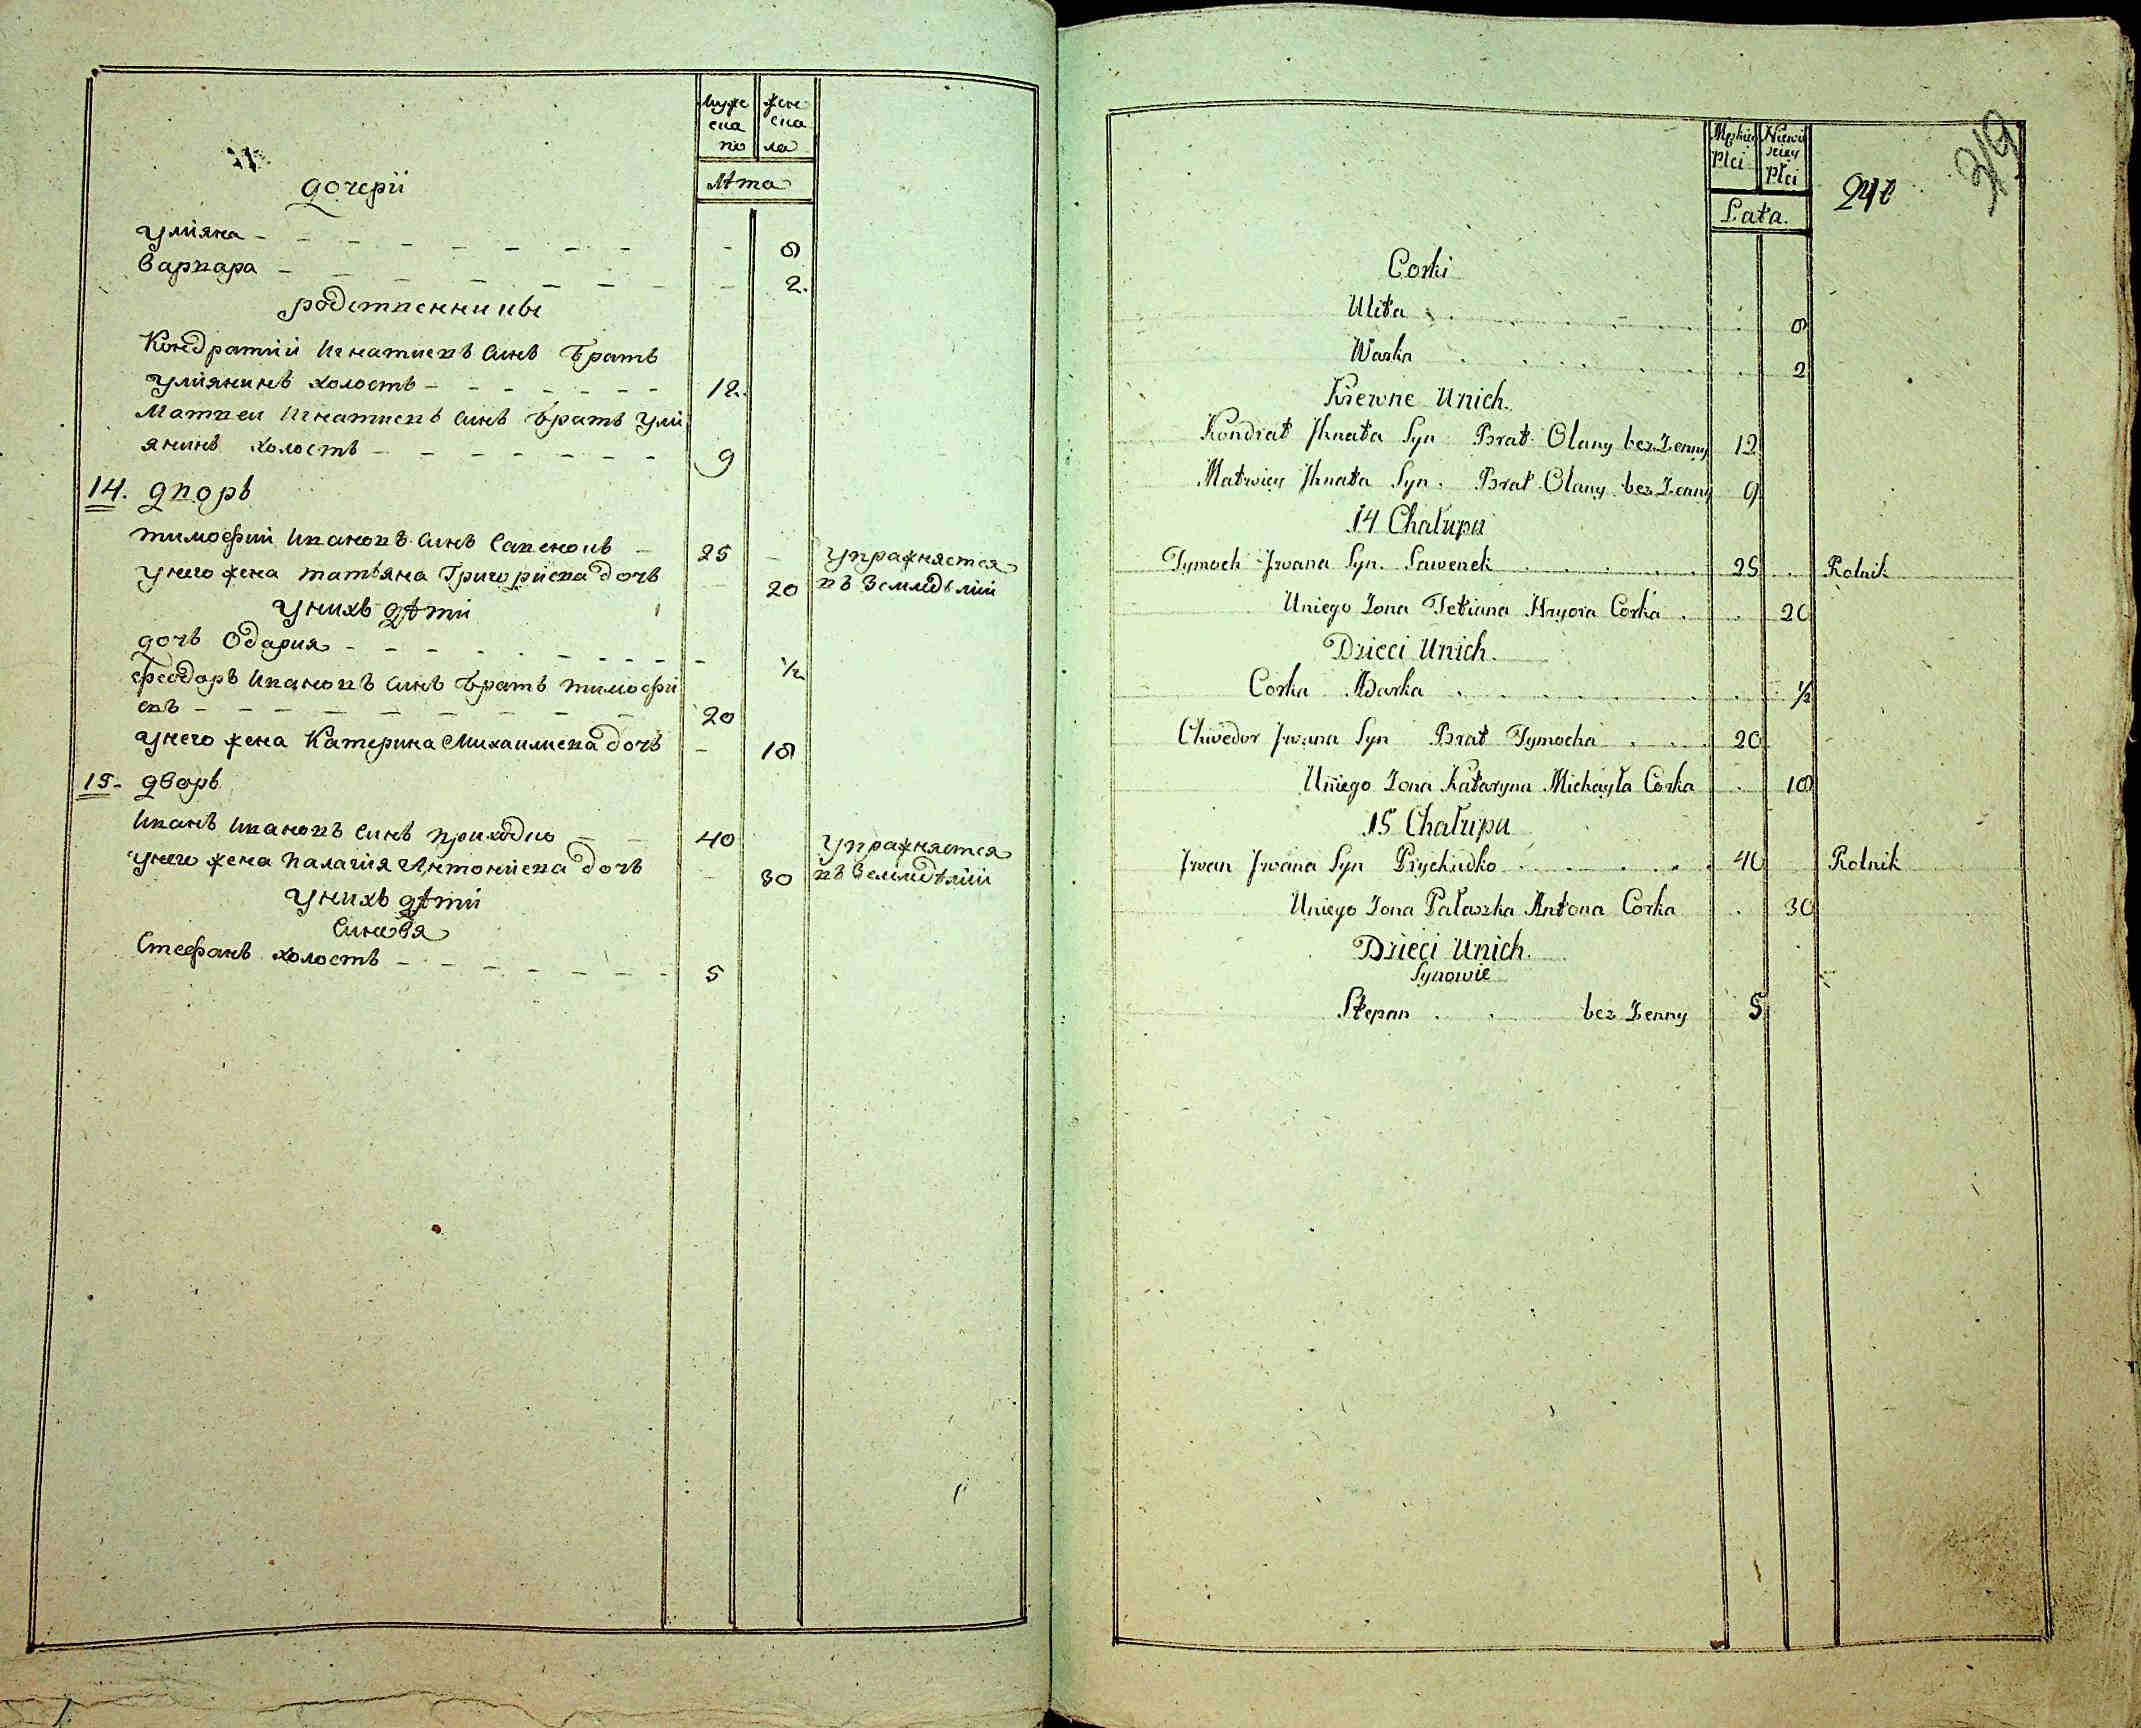 муже
ска
по
жен
ска
ла
лѣта
дочерїи
Улїяна - 8
Варвара - 2.
родственникы
Кондратїи Игнатиевъ синъ братъ
Улїянинъ холостъ - 12.
Матвеи Игнатиевъ синъ братъ Улї
янинъ холостъ - 9
14. дворъ
Тимофїи Ивановъ синъ Савенокъ - 25 - упражняется
унего жена Татьяна Григориева дочъ - 20 въ земледѣлїи
унихъ дѣти
дочъ Одария - 1/2
Феодоръ Ивановъ синъ братъ Тимофи
евъ - 20
унего жена Катерина Михаилиева дочъ - 18
15. дворъ
Иванъ Ивановъ синъ Приходко - 40 упражняется
унего жена Палагия Антониева дочъ - 30 въ земледѣлїи
унихъ дѣти
синовя
Стефанъ холостъ - 5
Męskiey
Płci
Niewie
sciey
Płci
Lata.
241
219
Corki
Ulita 8
Warka 2
Krewne Unich.
Kondrat Jhnata Syn Brat Olany bez Zenny 12
Matwiey Jhnata Syn. Brat Olany bez Zenny 9
14 Chałupa
Tymoch Jwana Syn. Sawenek 25 Rolnik
Uniego Zona Tetiana Hryora Corka 20
Dzieci Unich.
Corka Adarka 1/2
Chwedor Jwana Syn Brat Tymocha 20
Uniego Zona Kataryna Michayła Corka 18
15 Chałupa
Jwan Jwana Syn Prychudko 40 Rolnik
Uniego Zona Pałaszka Antona Corka 30
Dzieci Unich.
Synowie
Stepan bez Zenny 5